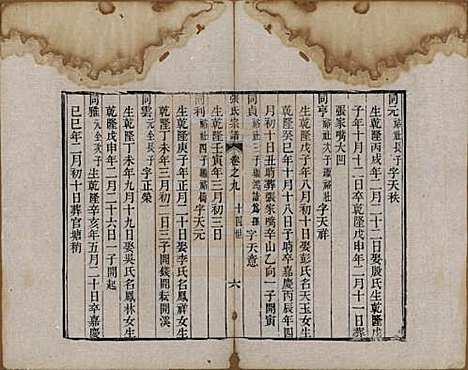 同元 裕社長子 字天秩
生乾隆丙戌年二月二十日娶殷氏生乾隆戊
子年十月十二日卒乾隆戊申年二月十一日葬
張家嘴大凹
同亨 裕社次子 字天祥
生乾隆戊子年八月初五日娶彭氏名天玉女生
乾隆癸巳年十月十八日子時卒嘉慶丙辰年四
月初十日丑時葬張家嘴辛山乙向一子開寅
同貞 裕社三子 字天意
張氏宗譜 卷之九 十四世 六
生乾隆壬寅年三月初三日
同利 字天元
生乾隆庚子年正月二十日娶李氏名鳳祥女生
乾隆 年三月初二日三子開錢開耘開漢
同雲 元長子 字正榮
生乾隆丁未年九月十九日娶吳氏名鳳林女生
乾隆戊申年二月二十六日一子開起
同雅 次子 生乾隆辛亥年五月二十日卒嘉慶
己巳年二月初十日葬官塘稍